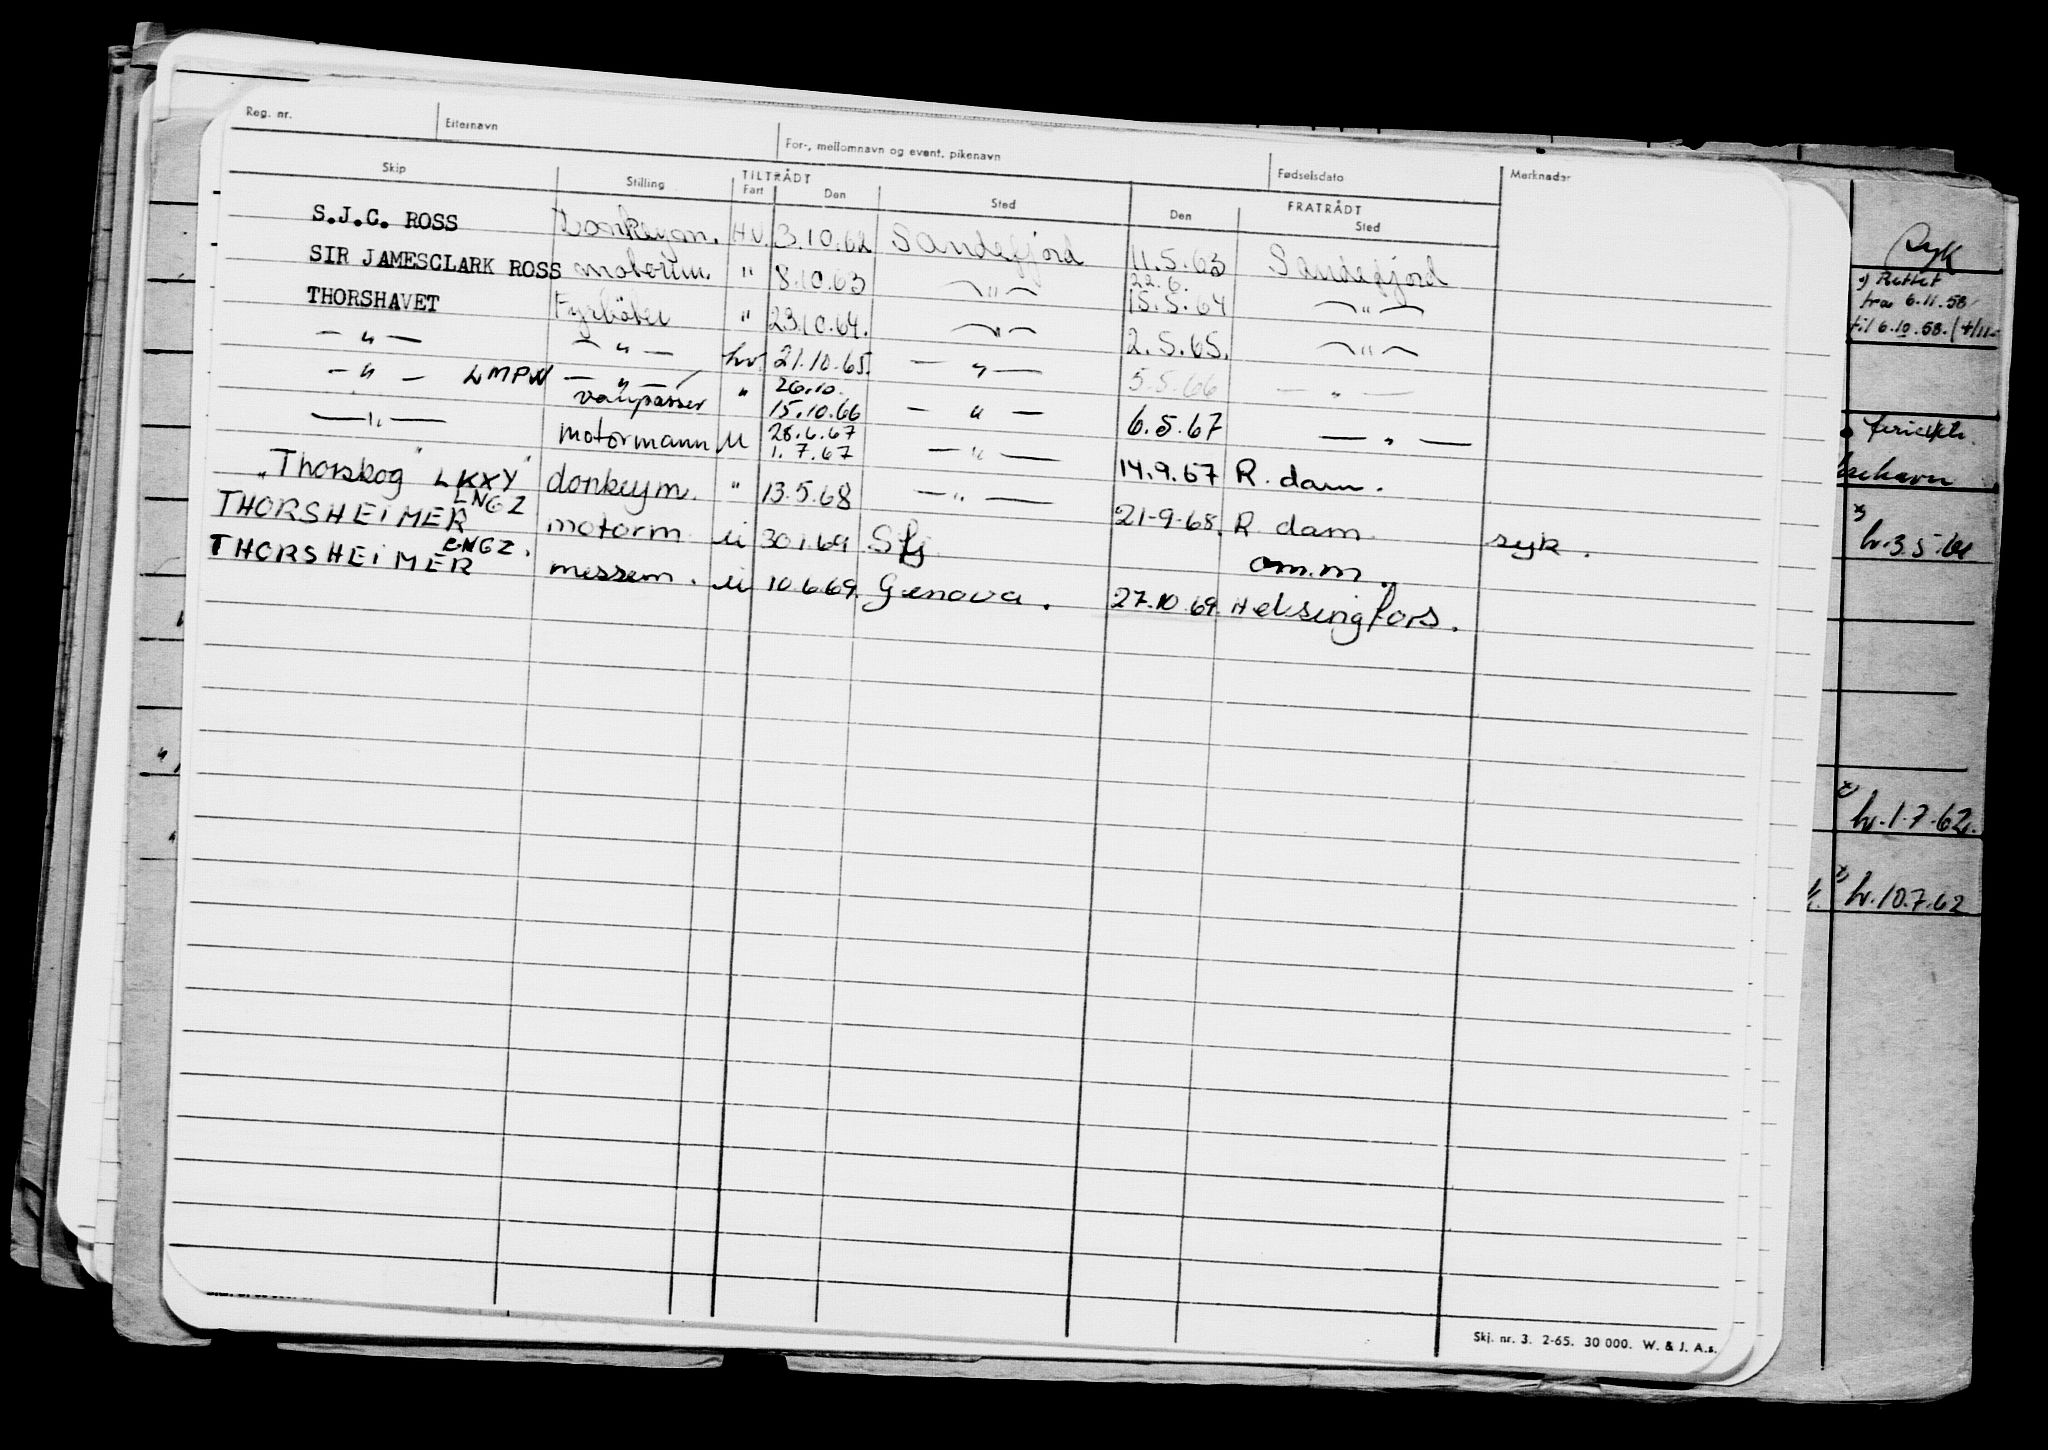 Reg. nr. Etternavn For-, mellomnavn og event. pikenavn Fødselsdato Merknader
Skip Stilling TILTRÅDT FRATRÅDT
Fart Den Sted Den Sted
S.J.C. ROSS Donkeym. HV. 3.10.62 Sandefjord 11.5.63 Sandefjord
SIR JAMESCLARK ROSS motorm. " 8.10.63 — " — 22.6. 15.5.64 — " —
THORSHAVET Fyrbøter " 23.10.64. — " — 2.5.65. — " —
— " — — " — hv. 21.10.65. — " — 5.5.66 — " —
— " — LMPW — " — vannpasser " 26.10. 15.10.66 — " — 6.5.67 — " —
— " — motormann U 28.6.67 1.7.67 — " — 14.9.67 R. dam.
"Thorskog" LKXY donkeym. " 13.5.68 — " — 21-9-68. R. dam syk.
THORSHEIMER LNGZ motorm U 30.1.69 Sfj om.m.
THORSHEIMER LNGZ. messem. U 10.6.69. Genova. 27.10.69. Helsingfors.
Skj. nr. 3. 2-65. 30 000. W. & J. A.s.
syk
x) Rettet
fra 6.11.58
til 6.10.58.
x)
hv. 3.5.61
x)
hv. 1.7.62.
x) hv. 10.7.62